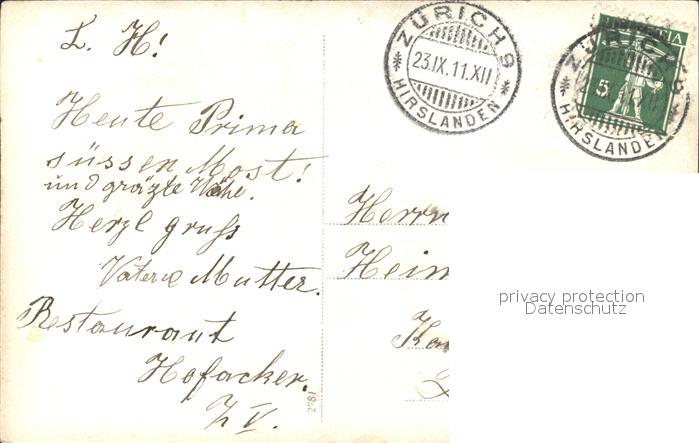 L. H!
Heute Prima
süssen Most!
und
Herzl gruss
Vater & Mutter.
Restaurant
Hofacker.
Z V.
2781
ZÜRICH 9
23.IX.11.XII
HIRSLANDEN
HELVETIA
5
ZÜRICH 9
HIRSLANDEN
Herrn
Hein
privacy protection
Datenschutz